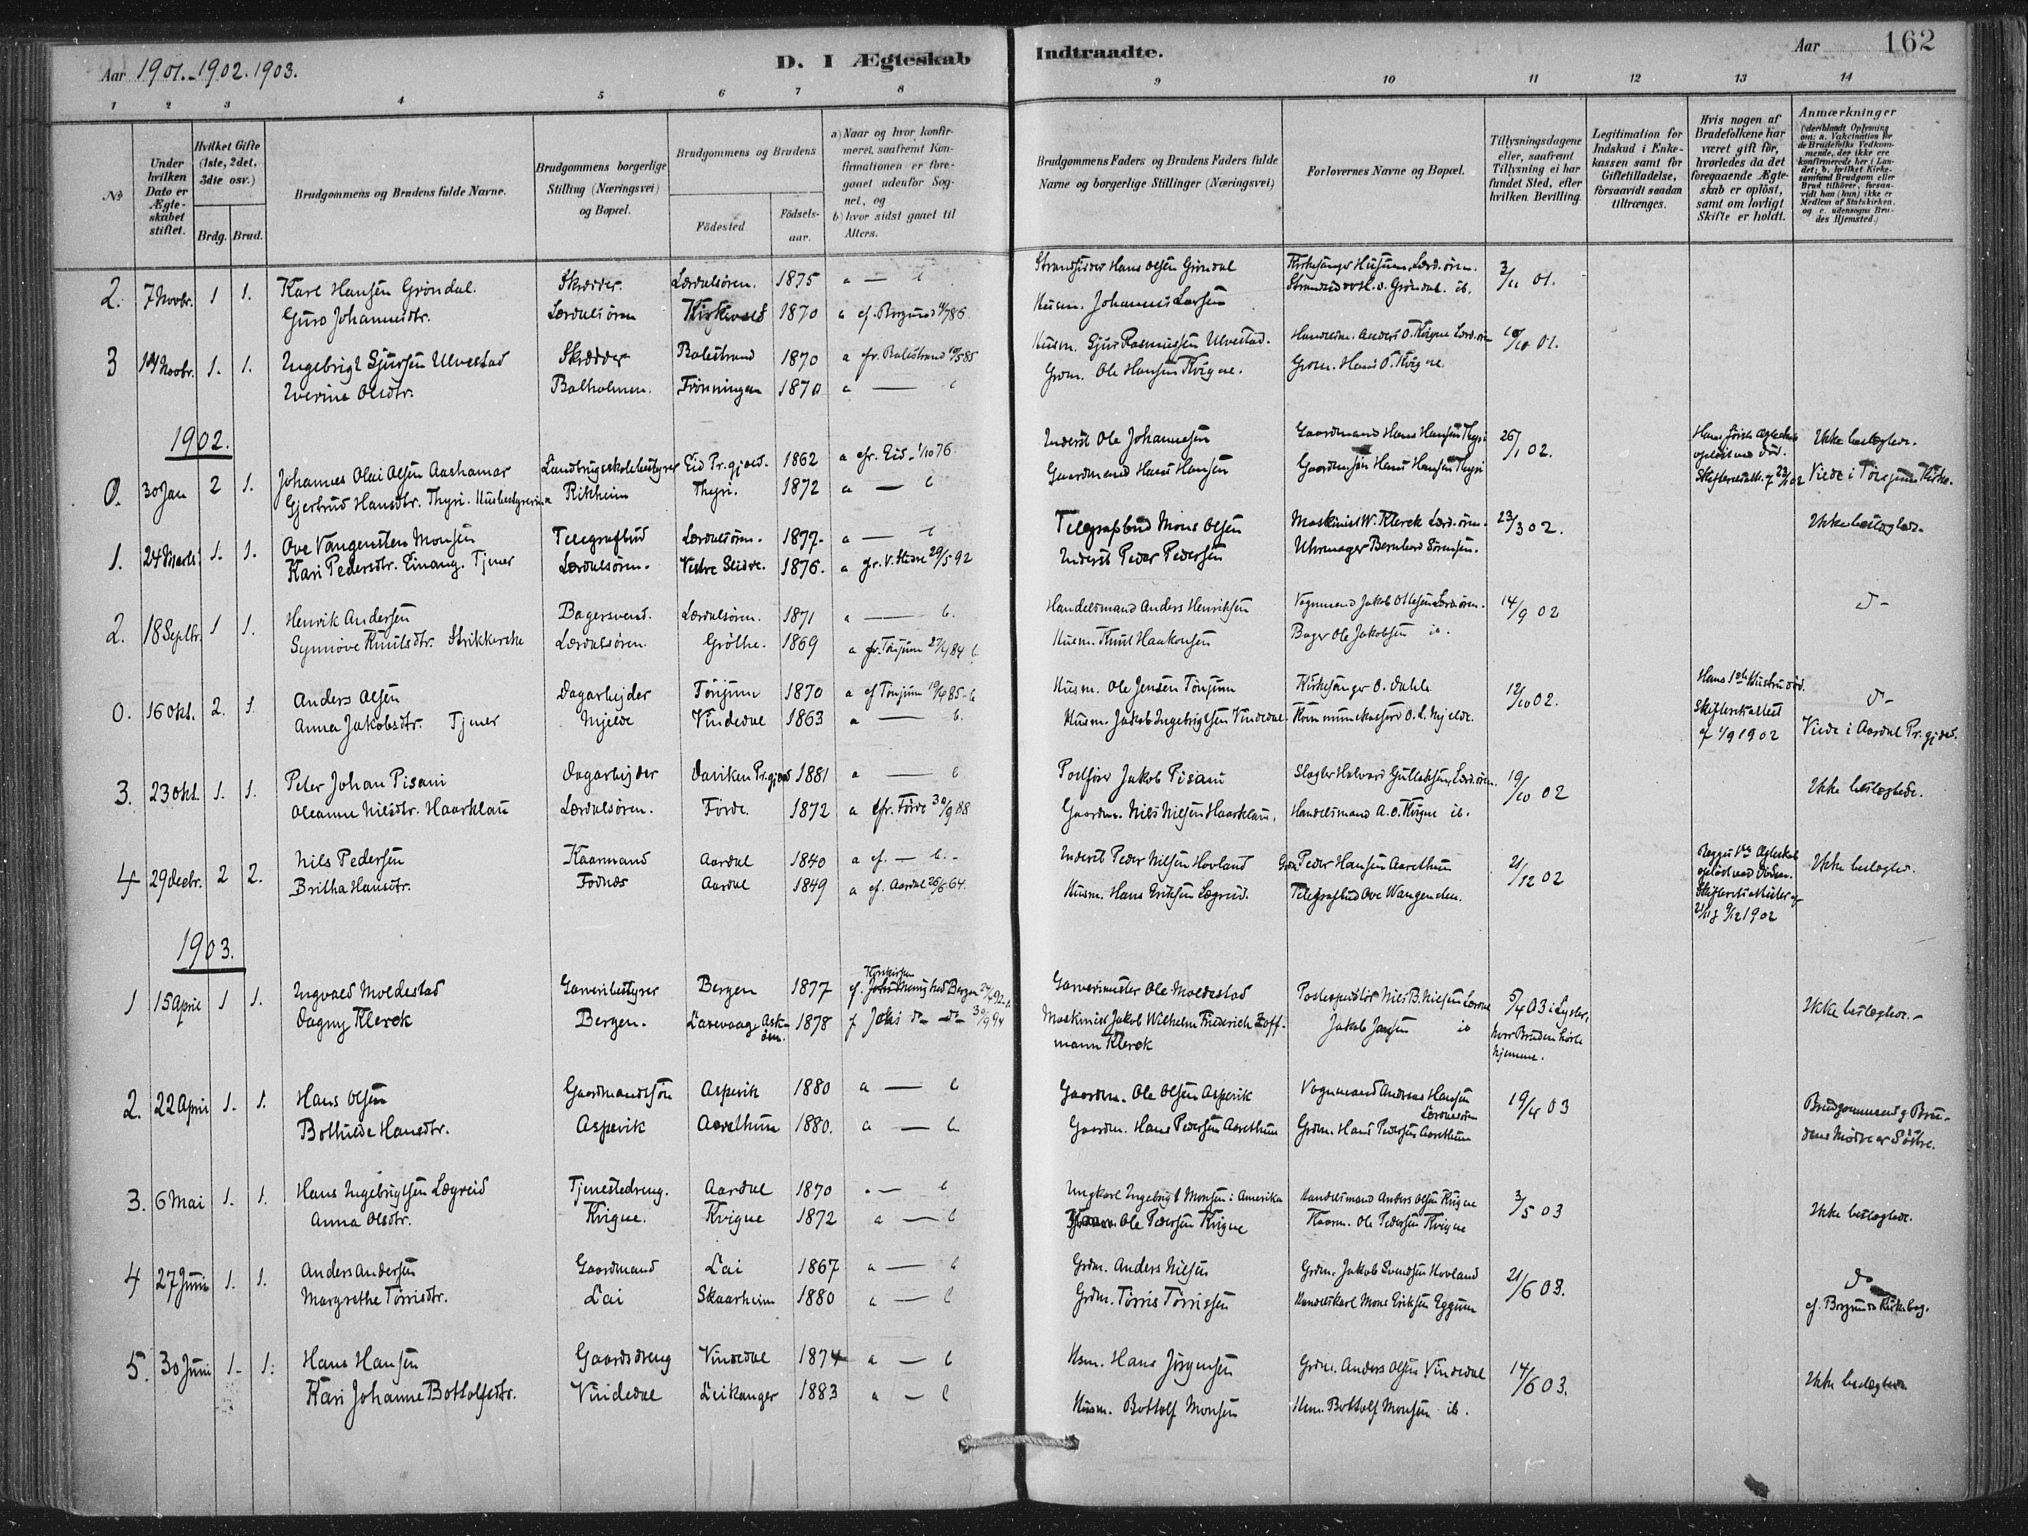 Aar 1901-1902. 1903.
D. I Ægteskab
Indtraadte.
Aar 162
1 2 3 4 5 6 7 8 9 10 11 12 13 14
No.
Under hvilken Dato er Ægteskabet stiftet.
Hvilket Gifte (1ste, 2det, 3die osv.)
Brdg. Brud.
Brudgommens og Brudens fulde Navne.
Brudgommens borgerlige Stilling (Næringsvei) og Bopæl.
Brudgommens og Brudens
Födested
Födselsaar.
a) Naar og hvor konfirmeret, saafremt Konfirmationen er foregaaet udenfor Sognet, og
b) hvor sidst gaaet til Alters.
Brudgommens Faders og Brudens Faders fulde Navne og borgerlige Stillinger (Næringsvei)
Forlovernes Navne og Bopæl.
Tillysningsdagene eller, saafremt Tillysning ei har fundet Sted, efter hvilken Bevilling.
Legitimation for Indskud i Enkekassen samt for Giftetilladelse, forsaavidt saadan tiltrænges.
Hvis nogen af Brudefolkene har været gift før, hvorledes da det foregaaende Ægteskab er oplöst, samt om lovligt Skifte er holdt.
Anmærkninger
(deriblandt Oplysning om: a. Vakcination for de Brudefolks Vedkommende, der ikke ere konfirmerede her i Landet; b. hvilket Kirkesamfund Brudgom eller Brud tilhörer, forsaavidt han (hun) ikke er Medlem af Statskirken, og c. udensogns Brudes Hjemsted.)
2. 7 Novbr. 1 1. Karl Hansen Gröndal. Skrædder Lærdalsören. 1875 a — b Strandsidder Hans Olsen Gröndal Kirkesanger Husum, Lærd.ören. 3/11 01.
Guro Johannesdtr. Lærdalsören 1870 a cf. Borgund Husm. Johannes Larsen
3 14 Novbr. 1. 1. Ingebrigt Sjursen Ulvestad Skrædder Balestrand 1870 a fr. Balestrand 10/5 85 Husm. Sjur Rasmussen Ulvestad. Handelsm. Anders O. Kvigne Lærd.ören 01.
Iverine Olsdtr. Balholmen. Frönningen 1870 a — b Grdm. Ole Hansen Kvigne. Grdm. Hans O. Kvigne.
1902.
0. 30 Jan 2 1. Johannes Olai Olsen Aashamar Landbrugsskolebestyrer Eid Pr.gjeld. 1862 a cfr. Eid 1/10 76. Inderst Ole Johannesen Gaardmand Hans Hansen Thyri 26/1 02. Hans förste Ægteskab oplöst ved Död. Ikke beslægtede.
Gjertrud Hansdtr. Thyri. Husbestyrerinde Rikheim Thyri. 1872 a — b Gaardmand Hans Hansen Gaardmsön Hans Hansen Thyri Viede i Tönjums Kirke.
1. 24 Marts 1. 1. Ove Vangensten Monsen Telegrafbud Lærdalsören. 1877. a — b Telegrafbud Mons Olsen Maskinist W. Klerck Lærd.ören. 23/3 02. Ikke beslægtede.
Kari Pedersdtr. Einang. Tjener Lærdalsören. Vestre Slidre. 1876. a fr. V. Slidre 29/5 92 Inderst Peder Pedersen Uhrmager Bernhard Sörensen.
2. 18 Septbr. 1 1. Henrik Andersen Bagersvend. Lærdalsören. 1871 a — b. Handelsmand Anders Henriksen Vognmand Jakob Olsen Lærd.ören. 14/9 02 d-
Synnöve Knutsdtr. Strikkerske Lærdalsören. Gröthe. 1869 a fr. Tönjum 84 b. Husm. Knut Haakonsen Bager Ole Jakobsen ib.
0. 16 Okt. 2. 1. Anders Olsen Dagarbejder Tönjum 1870 a cf Tönjum 19/4 85 - b Husm. Ole Jensen Tönjum Kirkesanger O. Dahle 12/10 02. Hans 1ste Hustru död. d-
Anna Jakobsdtr. Tjener Hjelde Vindedal 1863 a — b. Husm. Jakob Ingebrigtsen Vindedal O. L. Hjelde. Skifteretsattest af 1/9 1902 Viede i Aardal Pr.gjeld.
3. 23 Okt. 1. 1. Peter Johan Pisani Dagarbejder Daviken Pr.gjeld 1881 a — b Postförer Jakob Pisani Slagter Halvard Gulleksen, Lærd.ören. 19/10 02 Ikke beslægtede.
Oleanne Nilsdtr. Haarklau Lærdalsören. Förde. 1872 a cfr. Förde 30/9 88 Gaardm. Nils Nilsen Haarklau. Handelsmand A. O. Kvigne ib.
4 29 Decbr. 2 2. Nils Pedersen Kaarmand Aardal 1840 a cf. — b. - Inderst Peder Nilsen Hovland Grdm. Peder Hansen Aarethun 21/12 02 Begges 1ste Ægteskab oplöst ved Döden. Ikke beslægted.
Britha Hansdtr. Fodnæs Aardal 1849 a cf. Aardal 26/6 64. Husm. Hans Eriksen Lægreid. Telegrafbud Ove Wangensten. 9/12 1902
1903.
1 15 April 1 1. Ingvald Moldestad Garveribestyrer Bergen 1877 Korskirken Bergen Garvermester Ole Moldestad Postexpeditör Nils B. Nilsen Lærdal 5/4 03 i Lyster, Ikke beslægtede. -
Dagny Klerck Bergen. Laxevaag Asköen. 1878 30/9 94 Maskinist Jakob Wilhelm Friederich Hoffmann Klerck Jakob Jansen ib hvor Bruden hörte hjemme.
2. 22 April 1. 1. Hans Olsen Gaardmandssön Aspevik 1880 a — b Gaardm. Ole Olsen Aspevik Vognmand Andreas Hansen Lærdalsören 19/4 03 Brudgommens og Brudens Mödre er Söstre.
Bothilde Hansdtr. Aspevik Aarethun 1880. a — b. Gaardm. Hans Pedersen Aarethun Grdm. Hans Pedersen Aarethun
3. 6 Mai 1. 1. Hans Ingebrigtsen Lægreid Tjenestedreng. Aardal 1870 a — b Ungkarl Ingebrigt Monsen i Amerika Handelsmand Anders Olsen Kvigne 3/5 03 Ikke beslægtede.
Anna Olsdtr. Kvigne. Kvigne 1872 a — b Ole Pedersen Kvigne Kaarm. Ole Pedersen Kvigne
4 27 Juni 1. 1. Anders Andersen Gaardmand Lai 1867 a — b Grdm. Anders Nilsen Grdm. Jakob Svendsen Hovland 21/6 03. do
Margrethe Torrisdtr. Lai Skaarheim 1880 a — b Grdm. Torris Torrissen Handelskarl Mons Eriksen Eggum cf. Borgunds Kirkebog.
5. 30 Juni 1. 1. Hans Hansen Gaardsdreng Vindedal 1874 a — b Husm. Hans Jörgensen Grdm. Anders Olsen Vindedal 14/6 03. Ikke beslægtede
Kari Johanne Bottolfsdtr. Vindedal Leikanger 1883 a — b Husm. Bottolf Monsen Husm. Bottolf Monsen ib.